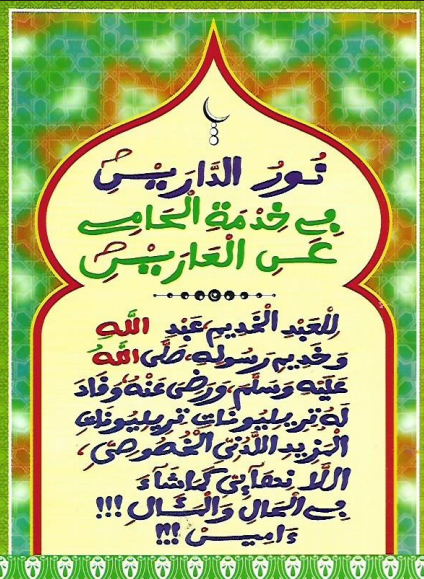 نُورُ الدَّارَيْنِ
فِي خِدْمَةِ الْحَامِي
عَنِ الْعَارَيْنِ
لِلْعَبْدِ الْخَدِيمِ، عَبْدِ اللَّهِ
وَخَدِيمِ رَسُولِهِ صَلَّى اللَّهُ
عَلَيْهِ وَسَلَّمَ وَرَضِيَ عَنْهُ وَقَادَ
لَهُ تريليونات تريليونات
المزيد اللَّدُنِّي الْخُصُوصِيّ،
اللَّا نهائي كَمَا شَاءَ
فِي الْحَالِ وَالْمَئَالِ !!!
ءَامِيس !!!